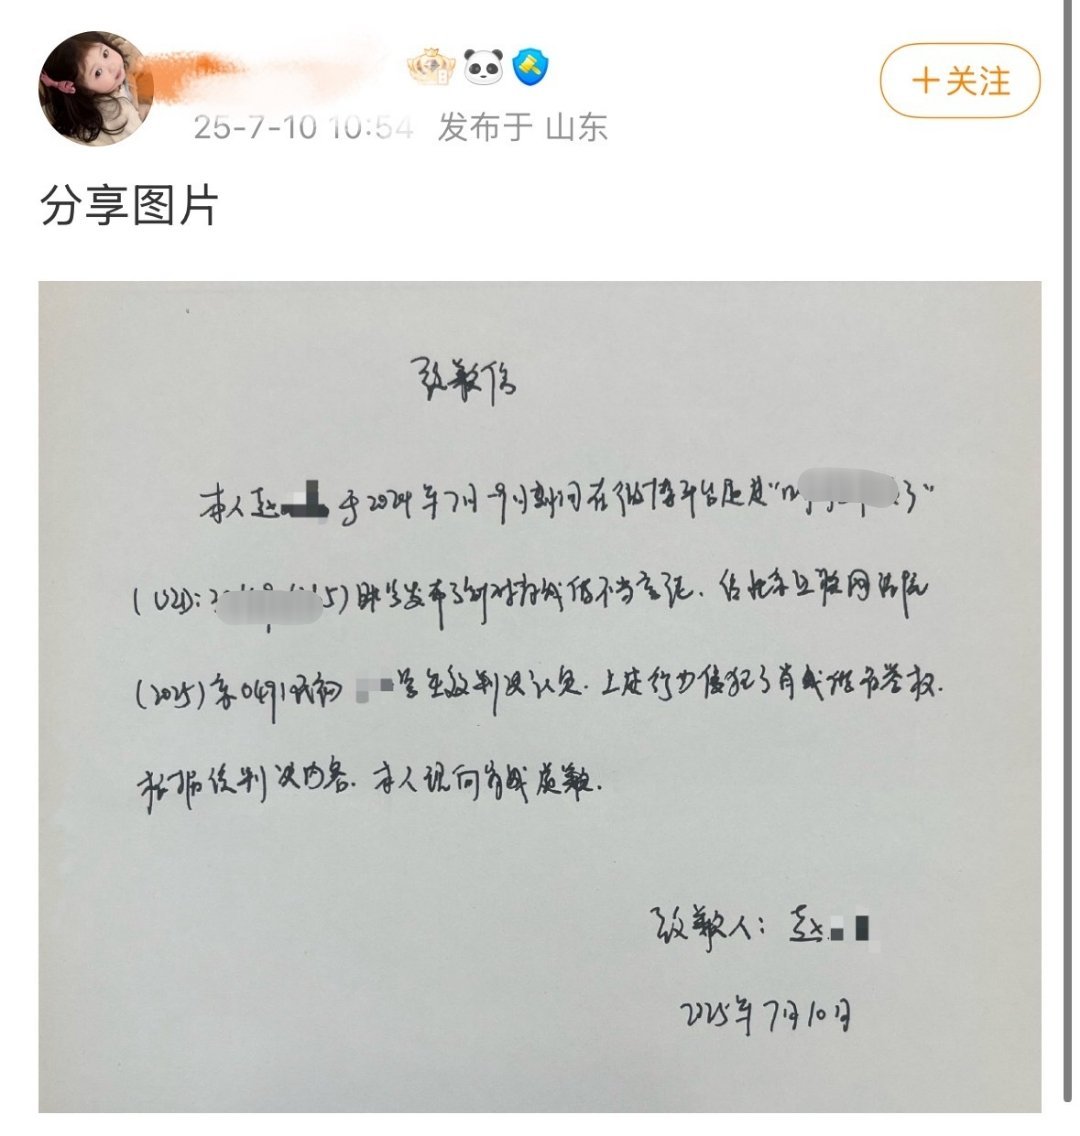 25-7-10 10:54 发布于 山东
+关注
分享图片
致歉信
本人赵 于2024年7月-9月期间在微博平台通过"
(UID: 5)账号发布了针对肖战的不当言论. 经北京互联网法院
(2025)京0491民初 号生效判决认定. 上述行为侵犯了肖战的名誉权.
根据该判决内容. 本人现向肖战道歉.
致歉人: 赵
2025年7月10日